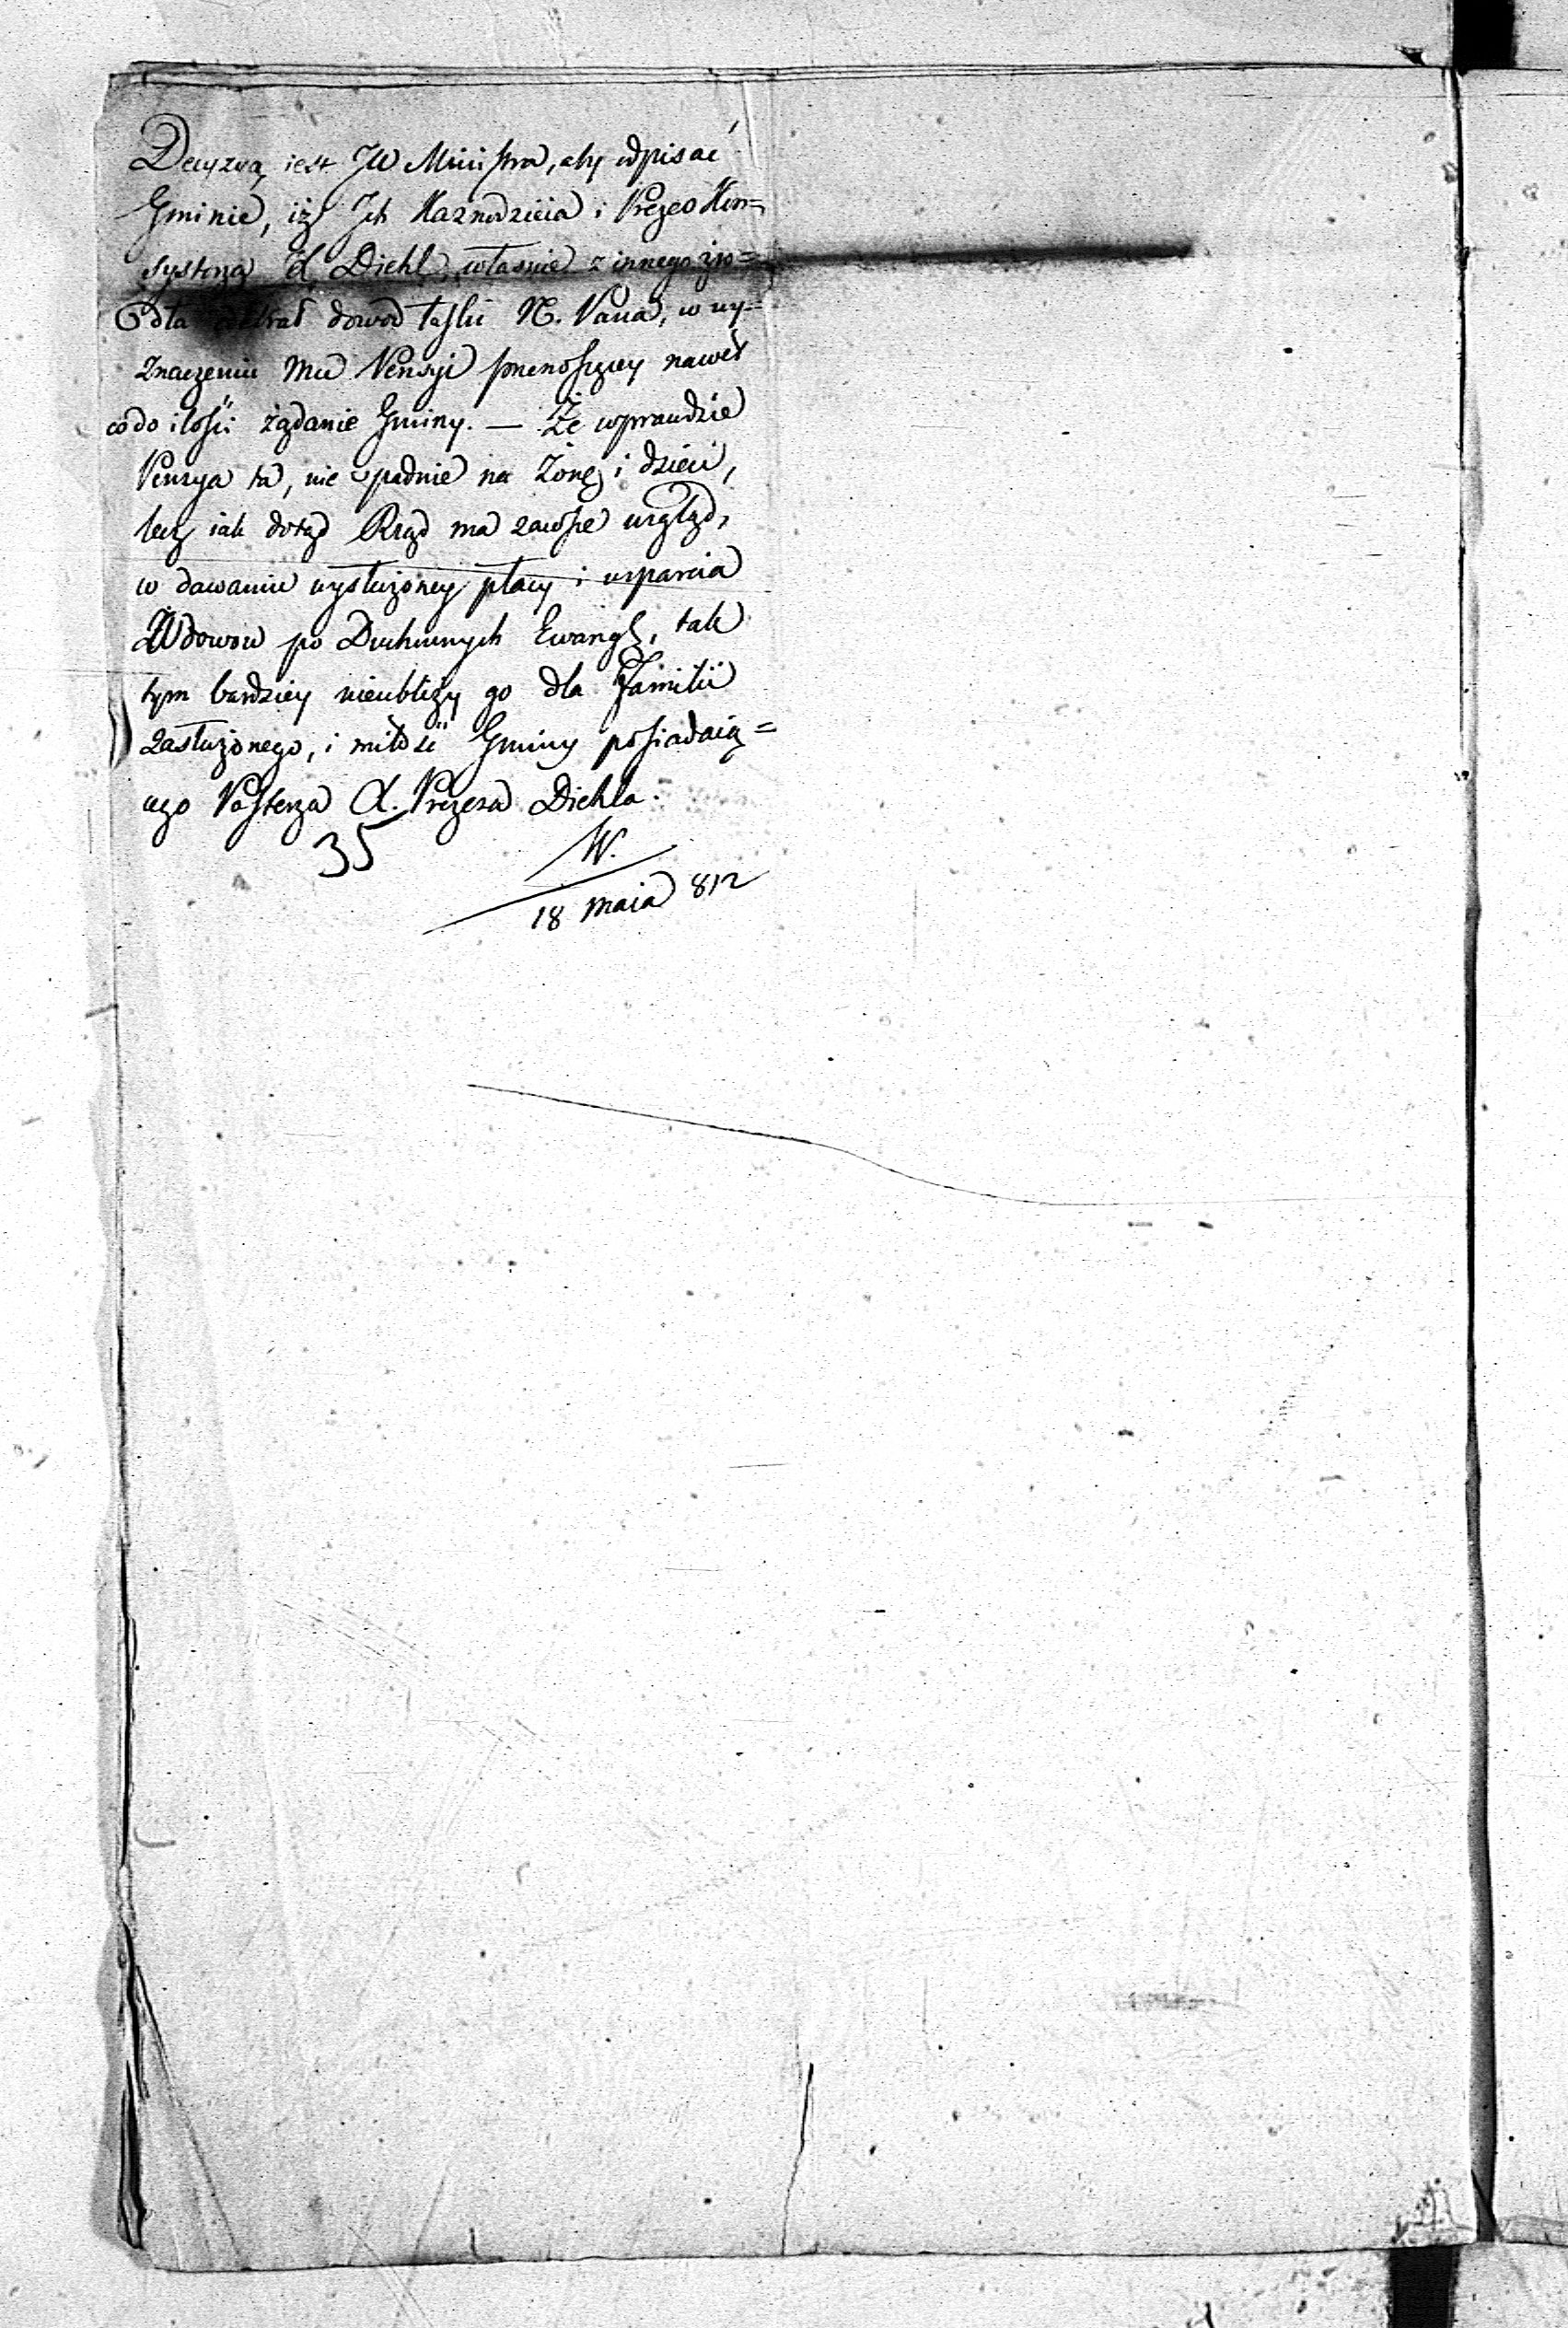 Decyzyą iest JW Ministra, aby odpisać
Gminie, iż Ich Kaznodzieia i Prezes Kon=
systorza X. Diehl, własnie z innego źro=
dła odebrał dowod łaski N. Pana, w wy=
znaczeniu mu Pensyi przenoszącey nawet
codo ilości żądanie Gminy. — Że wprawdzie
Pensya ta, nie spadnie na Żonę i dzieci,
lecz iak dotąd Rząd ma zawsze wzgląd,
w dawaniu wysłużoney płacy i wsparcia
Wdowow po Duchownych Ewangl, tak
tym bardziey nieubliży go dla Familii
zasłużonego, i miłość Gminy posiadaią=
cego Pasterza X. Prezesa Diehla.
35
W.
18 maia 812